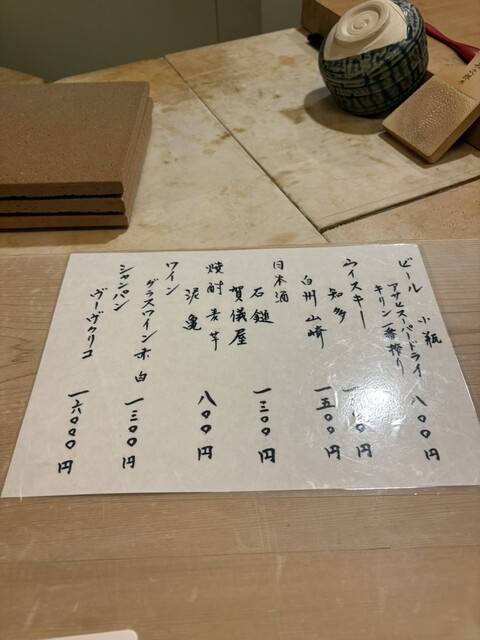 ビール 小瓶
アサヒスーパードライ 八〇〇円
キリン一番搾り
ウイスキー
知多 円
白州 山崎 一五〇〇円
日本酒
石鎚 一三〇〇円
賀儀屋
焼酎 麦 芋 八〇〇円
泥亀
ワイン
グラスワイン 赤 白 一三〇〇円
シャンパン
ヴーヴクリコ 一六〇〇〇円